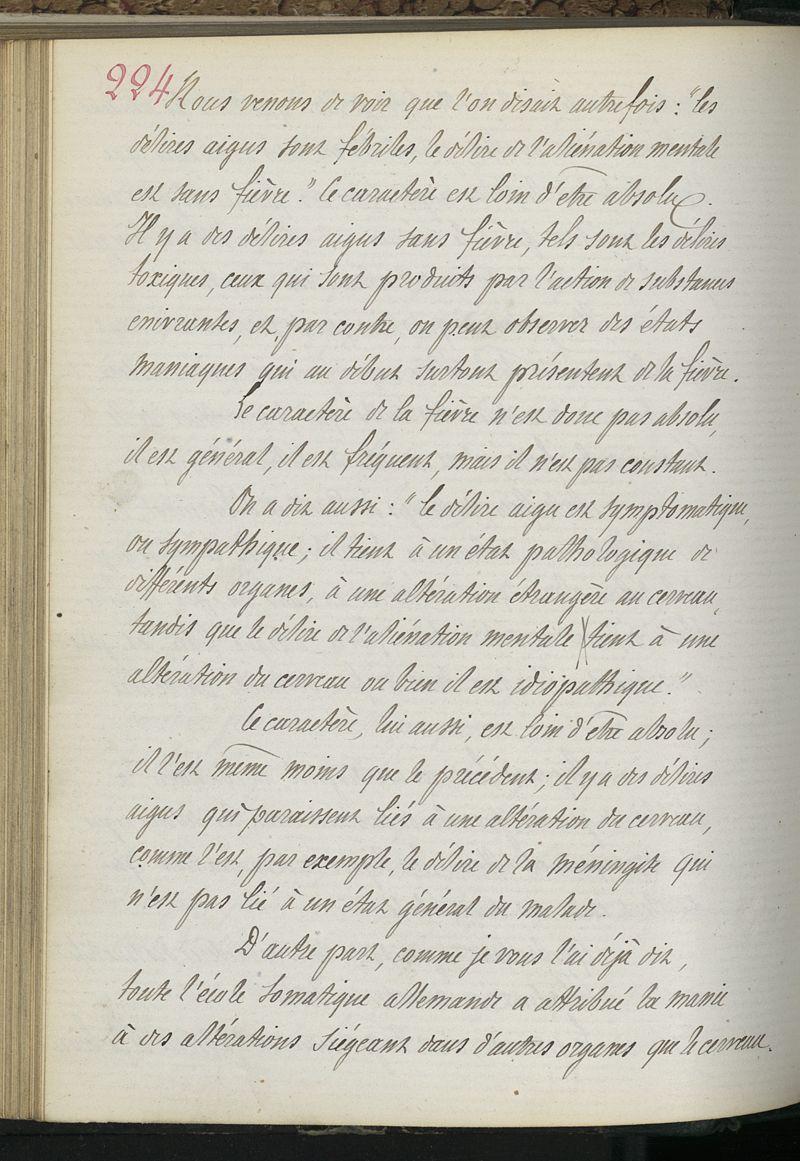 224 Nous venons de voir que l'on disait autrefois : "les
délires aigus sont fébriles, le délire de l'aliénation mentale
est sans fièvre." Ce caractère est loin d'être absolu.
Il y a des délires aigus sans fièvre, tels sont les délires
toxiques, ceux qui sont produits par l'action de substances
enivrantes, et, par contre, on peut observer des états
maniaques qui au début surtout présentent de la fièvre.
Le caractère de la fièvre n'est donc pas absolu,
il est général, il est fréquent, mais il n'est pas constant.
On a dit aussi : "le délire aigu est symptomatique,
ou sympathique ; il tient à un état pathologique de
différents organes, à une altération étrangère au cerveau,
tandis que le délire de l'aliénation mentale tient à une
altération du cerveau ou bien il est idiopathique."
Ce caractère, lui aussi, est loin d'être absolu ;
il l'est même moins que le précédent ; il y a des délires
aigus qui paraissent liés à une altération du cerveau,
comme l'est, par exemple, le délire de la méningite qui
n'est pas lié à un état général du malade.
D'autre part, comme je vous l'ai déjà dit,
toute l'école somatique allemande a attribué la manie
à des altérations siégeant dans d'autres organes que le cerveau.